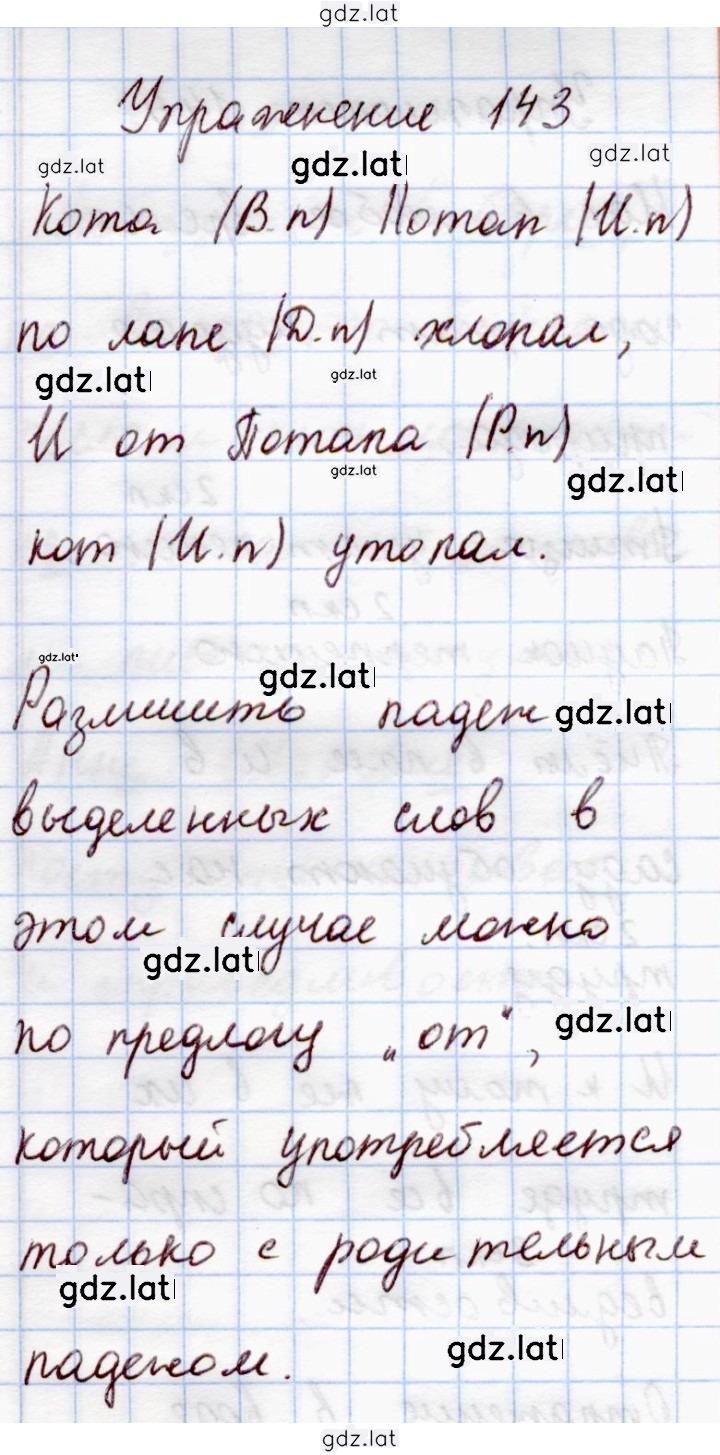 gdz.lat
Упражнение 143
gdz.lat gdz.lat gdz.lat
Кота (В.п) Потап (И.п)
по лапе (Д.п) хлопал,
gdz.lat gdz.lat
И от Потапа (Р.п)
gdz.lat gdz.lat
кот (И.п) утопал.
gdz.lat gdz.lat
Различить падеж gdz.lat
выделенных слов в
этом случае можно
gdz.lat
по предлогу „от", gdz.lat
который употребляется
только с родительным
gdz.lat
падежом. gdz.lat
gdz.lat